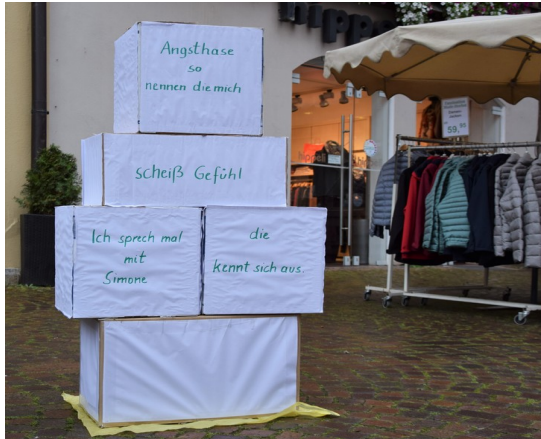 Angsthase
so
nennen die mich
scheiß Gefühl
Ich sprech mal
mit
Simone
die
kennt sich aus.
59,